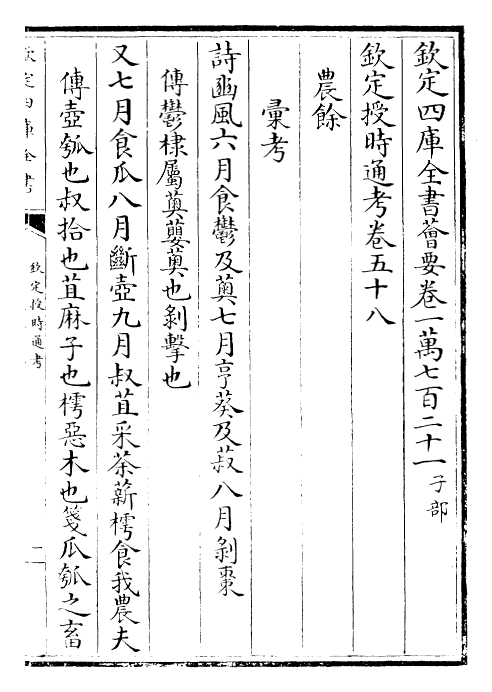 欽定四庫全書薈要卷一萬七百二十一子部
欽定授時通考卷五十八
農餘
彙考
詩豳風六月食鬱及薁七月亨葵及菽八月剝棗
傳鬱棣屬薁蘡薁也剝擊也
又七月食瓜八月斷壺九月叔苴采荼薪樗食我農夫
傳壺瓠也叔拾也苴麻子也樗惡木也箋瓜瓠之畜
欽定四庫全書
欽定授時通考